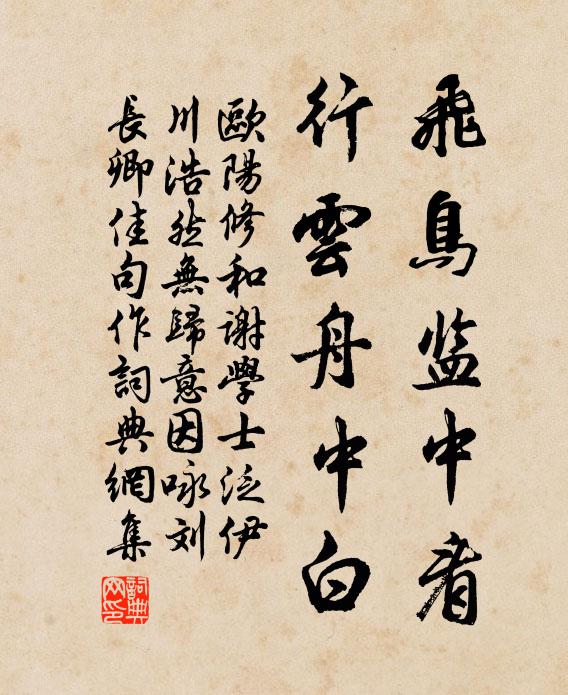 飛鳥监中看
行雲舟中白
歐陽修和謝學士泛伊
川浩然無歸意因咏刘
長卿佳句作詞典網集
詞典
网印